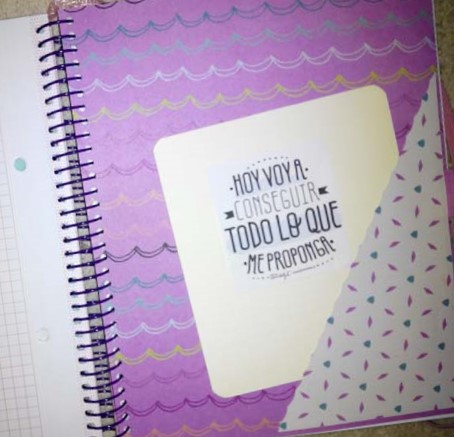 ·HOY VOY A·
CONSEGUIR
TODO LO QUE
·ME PROPONGA·